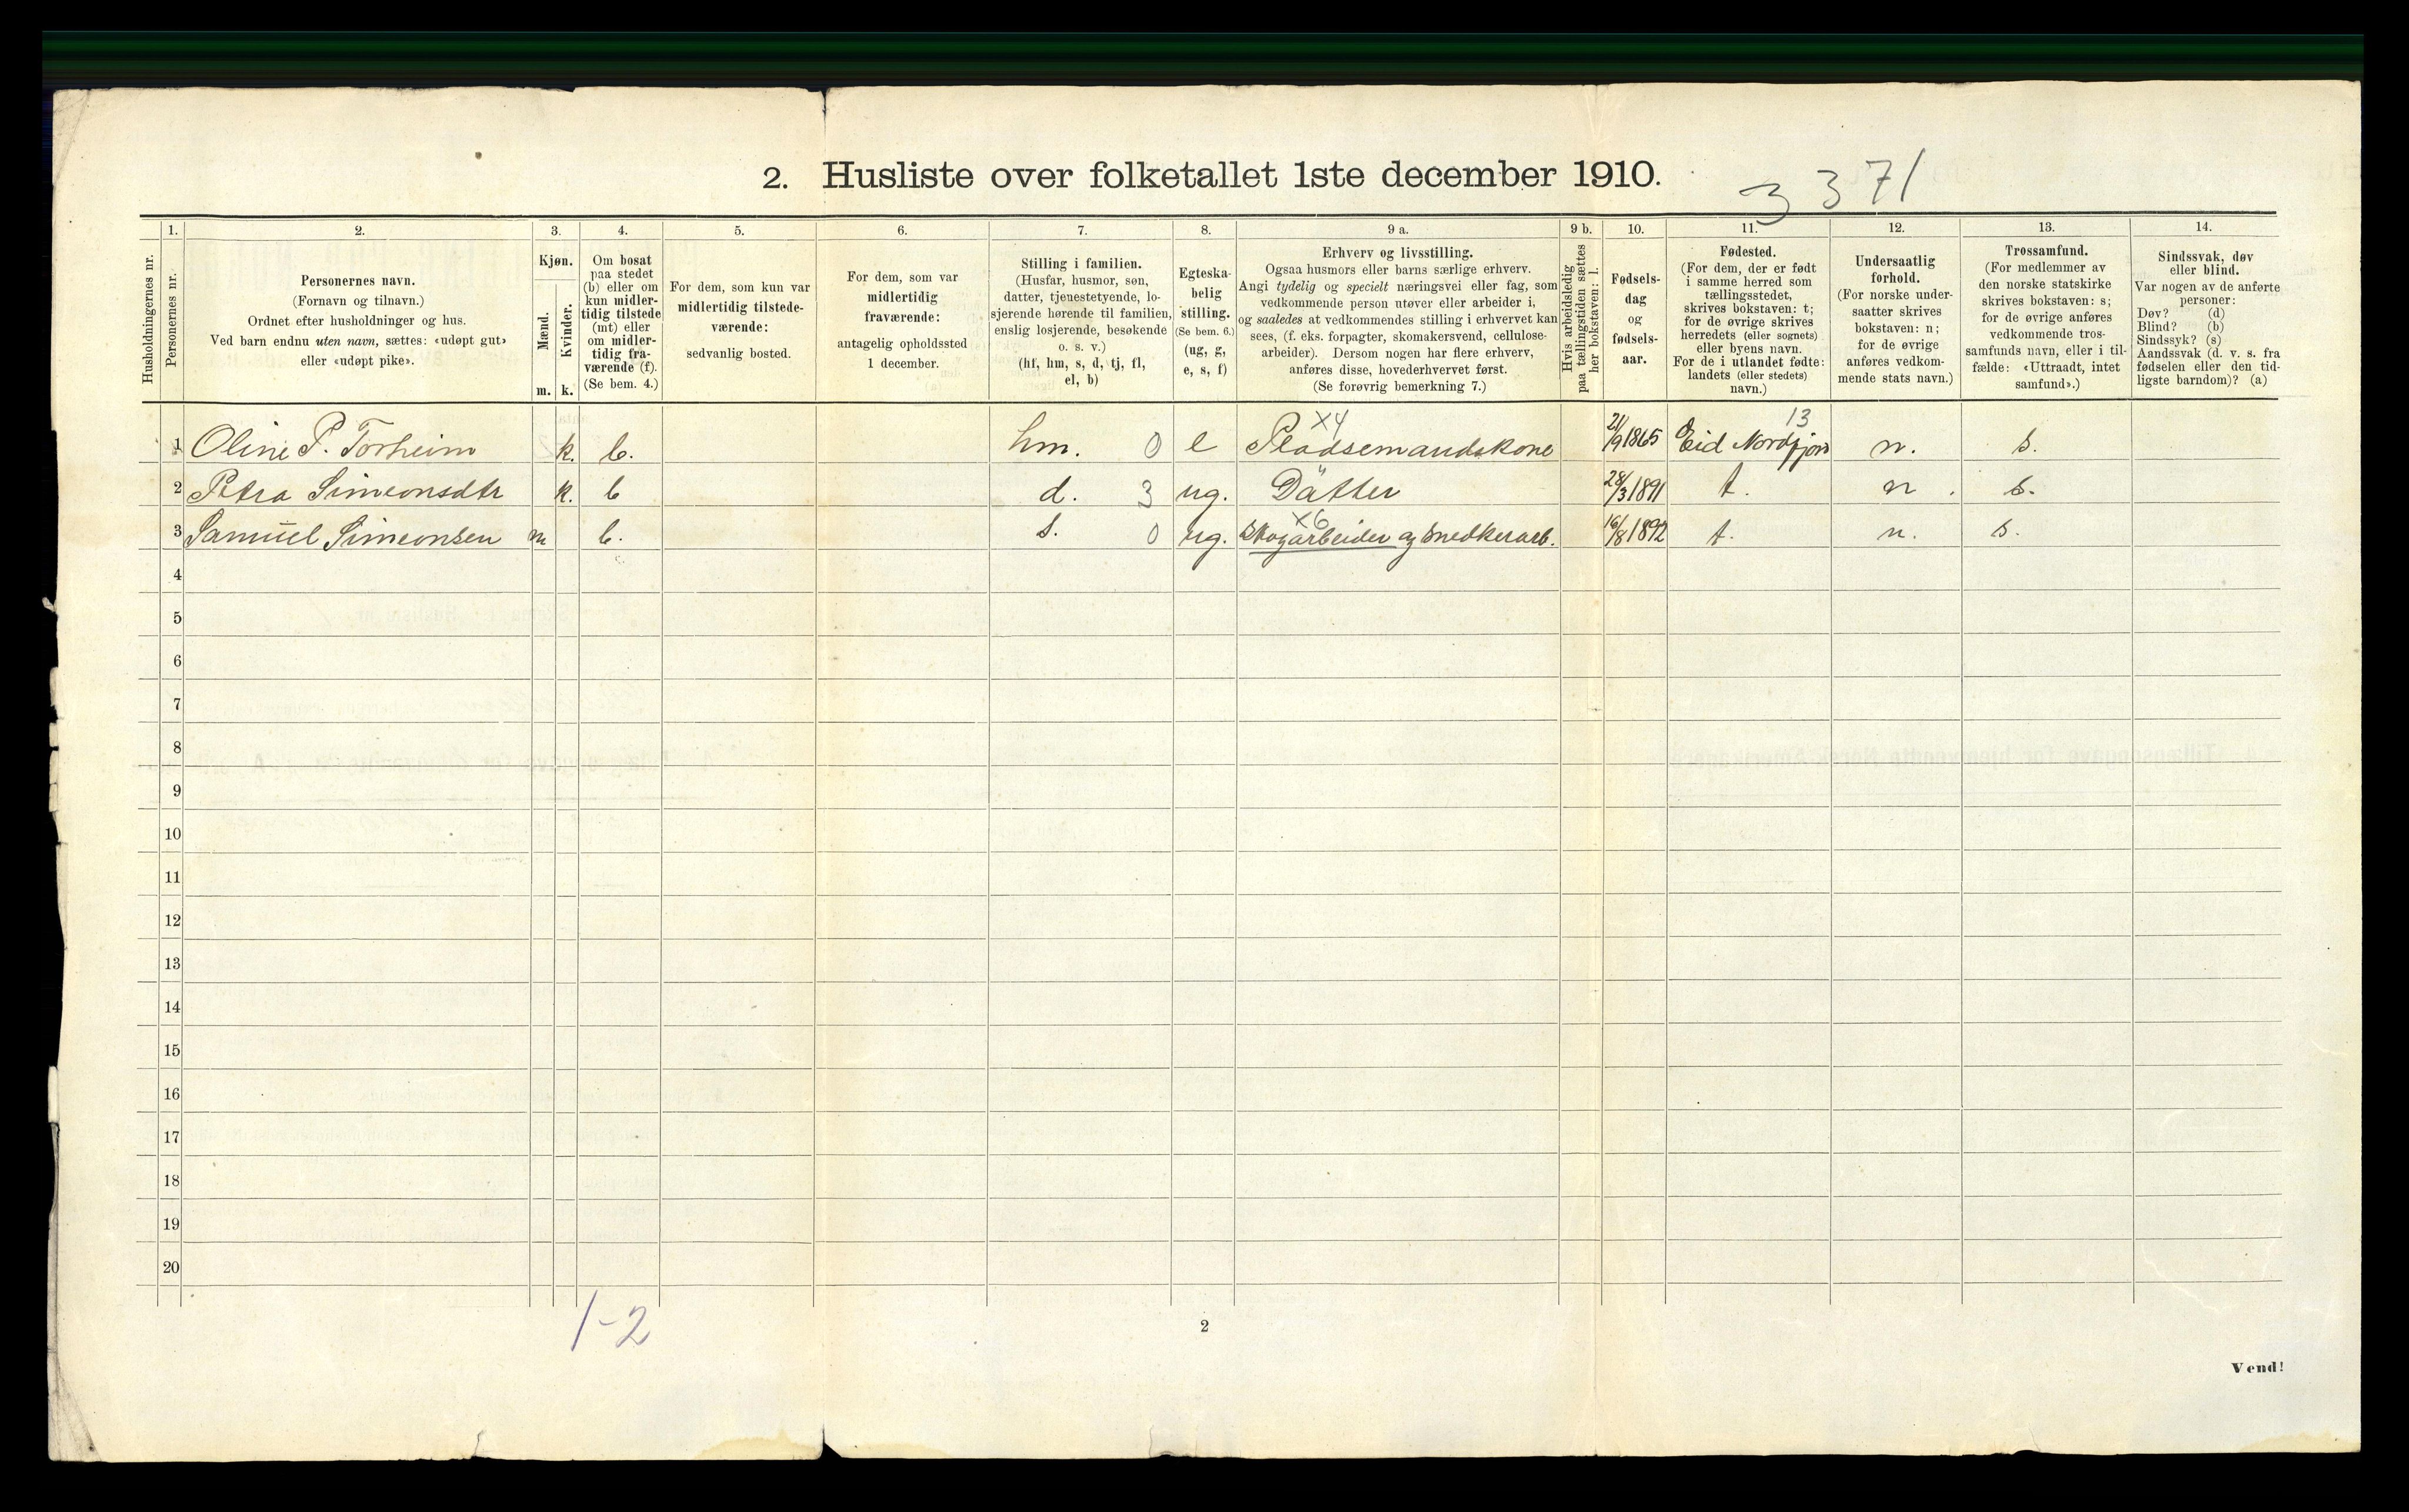 2. Husliste over folketallet 1ste december 1910.
3 371
1. 2. 3. 4. 5. 6. 7. 8. 9 a. 9 b. 10. 11. 12. 13. 14.
Husholdningernes nr.
Personernes nr.
Personernes navn.
(Fornavn og tilnavn.)
Ordnet efter husholdninger og hus.
Ved barn endnu uten navn, sættes: «udøpt gut»
eller «udøpt pike».
Kjøn.
Mænd.
m.
Kvinder.
k.
Om bosat
paa stedet
(b) eller om
kun midler-
tidig tilstede
(mt) eller
om midler-
tidig fra-
værende (f).
(Se bem. 4.)
For dem, som kun var
midlertidig tilstede-
værende:
sedvanlig bosted.
For dem, som var
midlertidig
fraværende:
antagelig opholdssted
1 december.
Stilling i familien.
(Husfar, husmor, søn,
datter, tjenestetyende, lo-
sjerende hørende til familien,
enslig losjerende, besøkende
o. s. v.)
(hf, hm, s, d, tj, fl,
el, b)
Egteska-
belig
stilling.
(Se bem. 6.)
(ug, g,
e, s, f)
Erhverv og livsstilling.
Ogsaa husmors eller barns særlige erhverv.
Angi tydelig og specielt næringsvei eller fag, som
vedkommende person utøver eller arbeider i,
og saaledes at vedkommendes stilling i erhvervet kan
sees, (f. eks. forpagter, skomakersvend, cellulose-
arbeider). Dersom nogen har flere erhverv,
anføres disse, hovederhvervet først.
(Se forøvrig bemerkning 7.)
Hvis arbeidsledig
paa tællingstiden sættes
her bokstaven: l.
Fødsels-
dag
og
fødsels-
aar.
Fødested.
(For dem, der er født
i samme herred som
tællingsstedet,
skrives bokstaven: t;
for de øvrige skrives
herredets (eller sognets)
eller byens navn.
For de i utlandet fødte:
landets (eller stedets)
navn.)
Undersaatlig
forhold.
(For norske under-
saatter skrives
bokstaven: n;
for de øvrige
anføres vedkom-
mende stats navn.)
Trossamfund.
(For medlemmer av
den norske statskirke
skrives bokstaven: s;
for de øvrige anføres
vedkommende tros-
samfunds navn, eller i til-
fælde: «Uttraadt, intet
samfund».)
Sindssvak, døv
eller blind.
Var nogen av de anførte
personer:
Døv? (d)
Blind? (b)
Sindssyk? (s)
Aandssvak (d. v. s. fra
fødselen eller den tid-
ligste barndom)? (a)
X4 13
1 Oline P. Torheim k. b. hm. 0 e Pladsemandskone 21/9 1865 Eid Nordfjord n. s.
2 Petra Simeonsdtr k. b d. 3 ug. Datter 28/3 1891 t. n. s.
X6
3 Samuel Simeonsen m b. s. 0 ug. Skogarbeider og snedkerarb. 16/8 1892 t. n. s.
4
5
6
7
8
9
10
11
12
13
14
15
16
17
18
19
20
1-2
2
Vend!